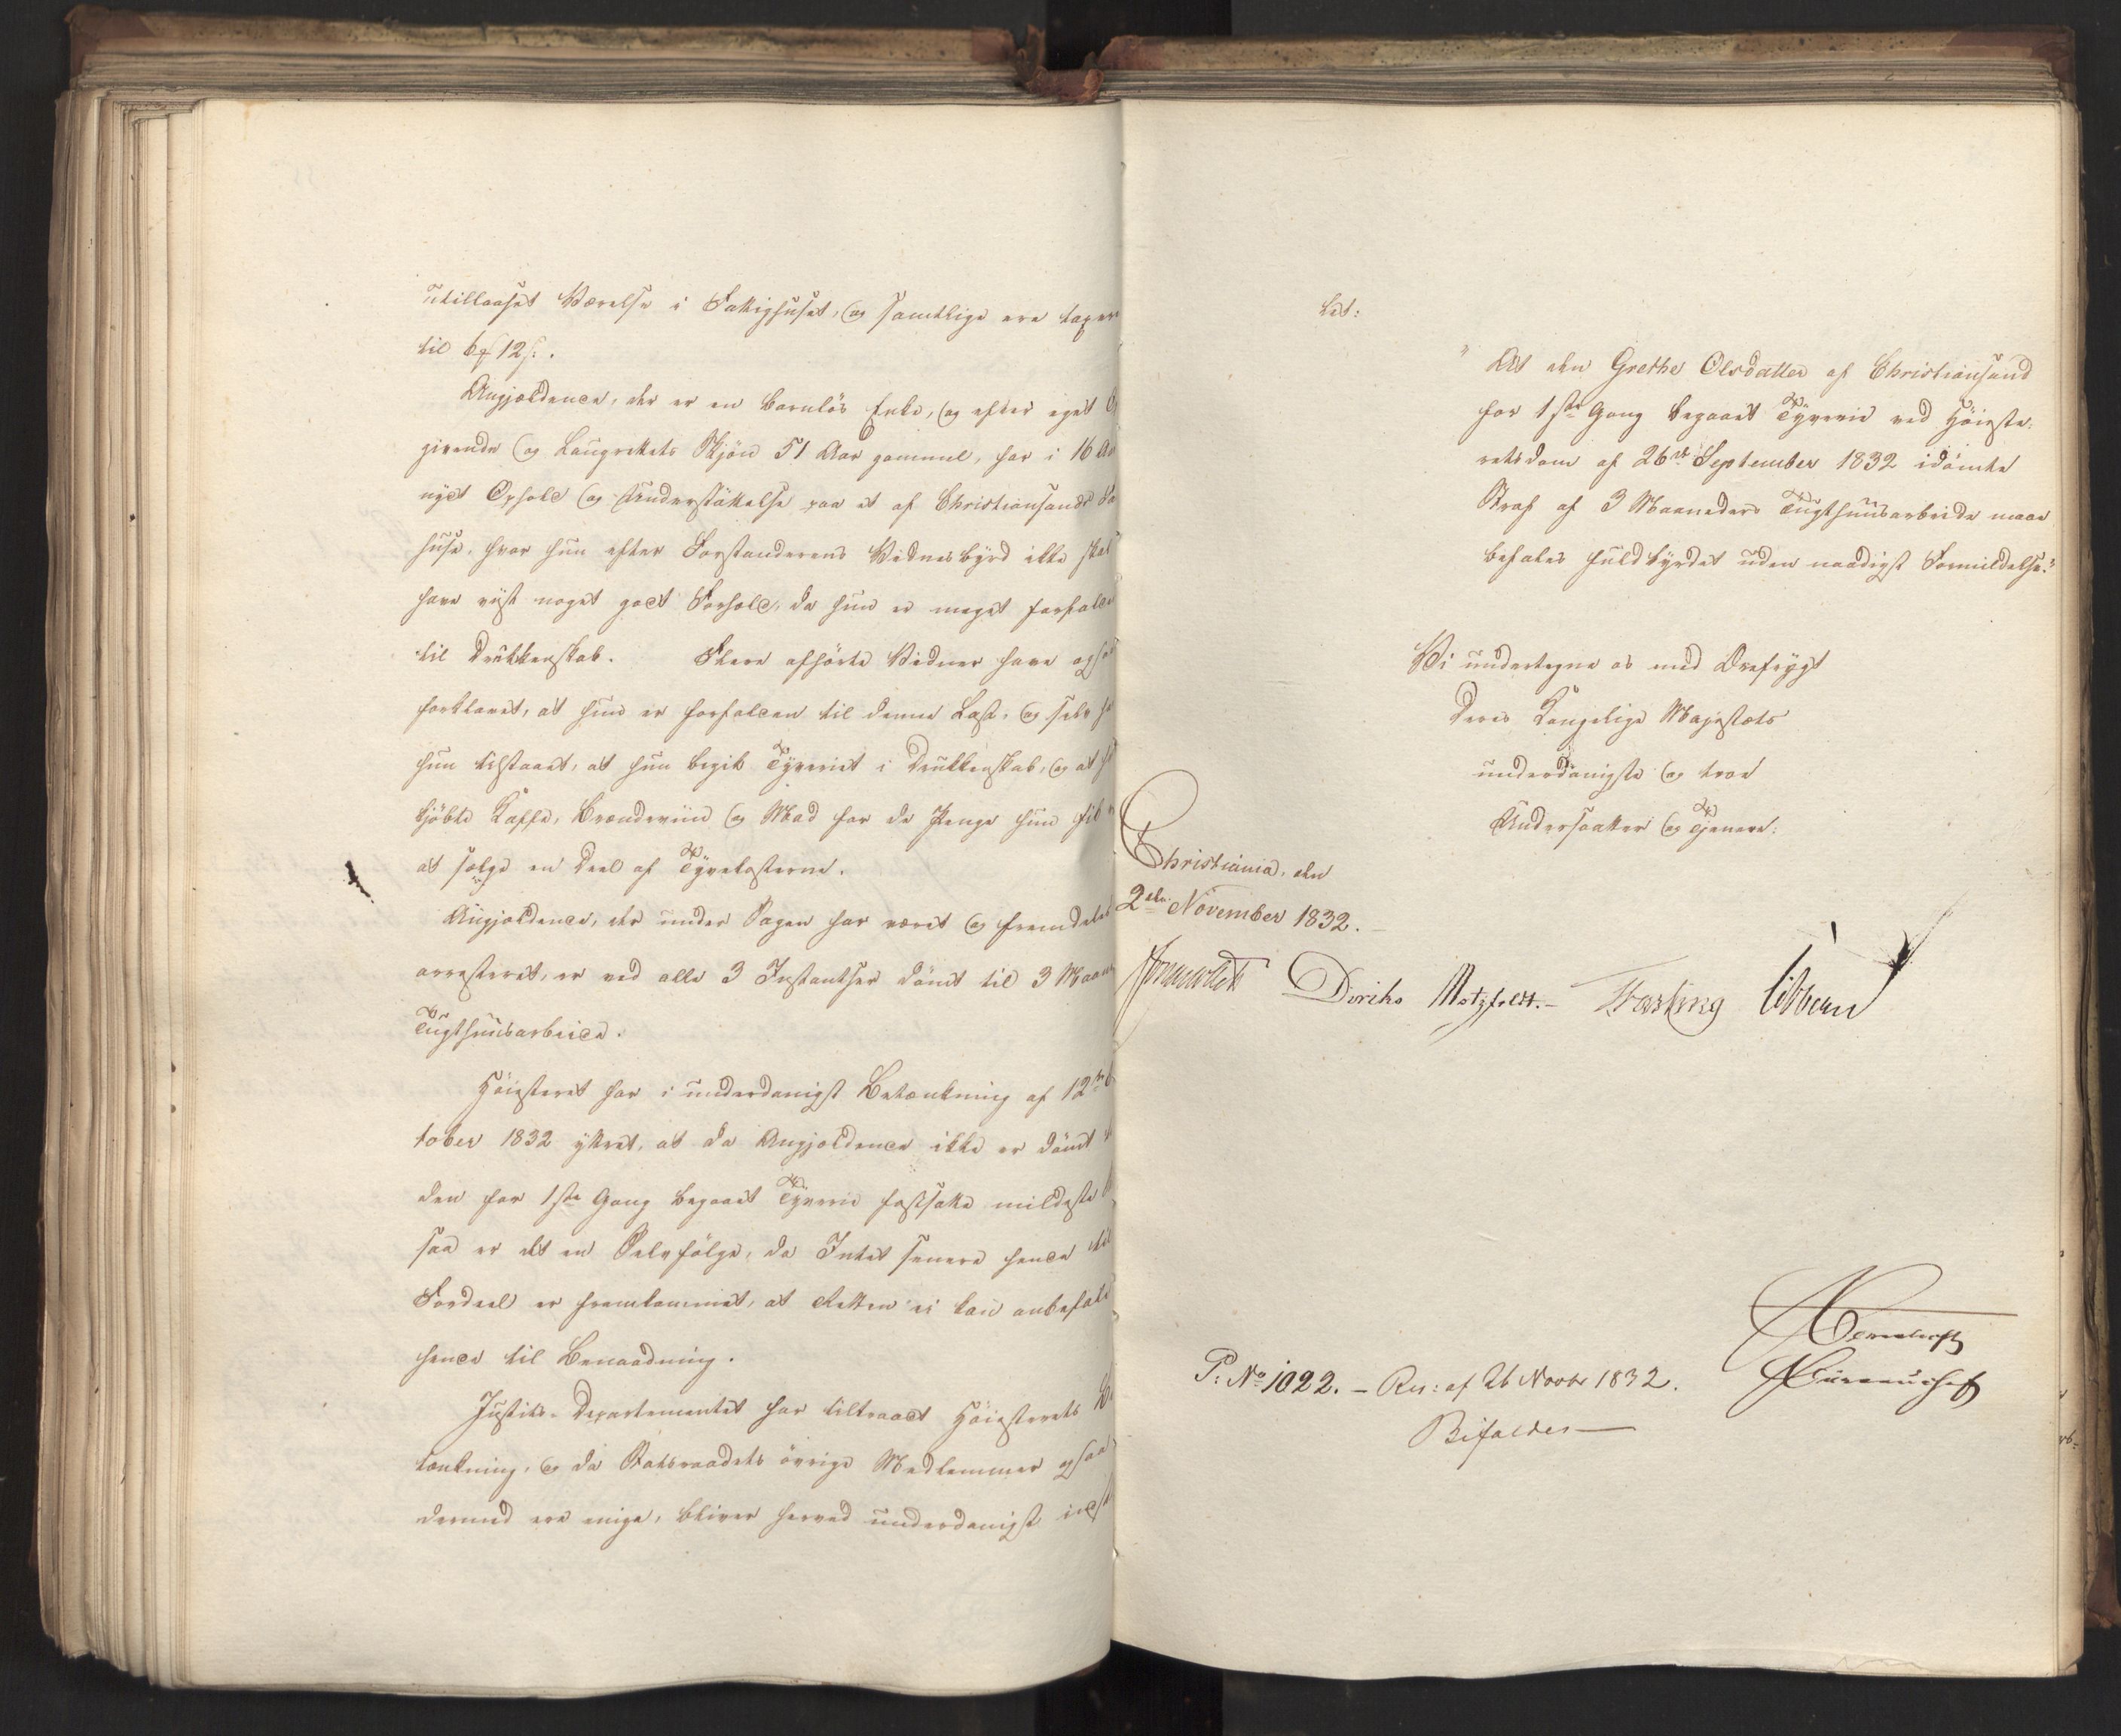 utillaaset Værelse i Fattighuset, og samtlige ere taxer
til 6 12 s.
Angjeldende, der er en barnløs Enke, og efter eget
givende og Laugrettets Skjøn 51 Aar gammel, har i 16 Aa
nydt Ophold og Understøttelse paa et af Christiansands Fa
huse, hvor hun efter Forstanderens Vidnesbyrd ikke skal
have viist noget godt Forhold, da hun er meget forfalden
til Drukkenskab. Flere afhørte Vidner have ogsaa
forklaret, at hun er forfalden til denne Last, og selv ha
hun tilstaaet, at hun begik Tyveriet i Drukkenskab, og at hu
kjøbte Kaffe, Brændeviin og Mad for de Penge hun fik
at sælge en Deel af Tyvekosterne.
Angjeldende, der under Sagen har været og fremdeles
arresteret, er ved alle 3 Instantser dømt til 3 Maan
Tugthuusarbeide.
Høiesteret har i underdanigst Betænkning af 12te
tober 1832 yttret, at da Angjeldende ikke er dømt
den for 1ste Gang begaaet Tyverie fastsatte mildeste
saa er det en Selvfølge, da Intet senere hende til
Fordeel er fremkommet, at Retten ei kan anbefale
hende til Benaadning.
Justits-Departementet har tiltraadt Høiesterets Be
tænkning, og da Statsraadets øvrige Medlemmer ogsaa
dermed ere enige, bliver herved underdanigst indstil
let:
"At den Grethe Olsdatter af Christiansand
for 1ste Gang begaaet Tyverie ved Høieste-
retsdom af 26de September 1832 idømte
Straf af 3 Maaneders Tugthuusarbeide maae
befales fuldbyrdet uden naadigst Formildelse."
Vi undertegne os med Ærefrygt
Deres Kongelige Majestæts
underdanigste og troe
Undersaatter og Tjenere:
Christiania, den
2den November 1832.
Diriks Motzfeldt. Fasting
P: No 1022. - Res: af 26 Novbr 1832.
Bifaldes